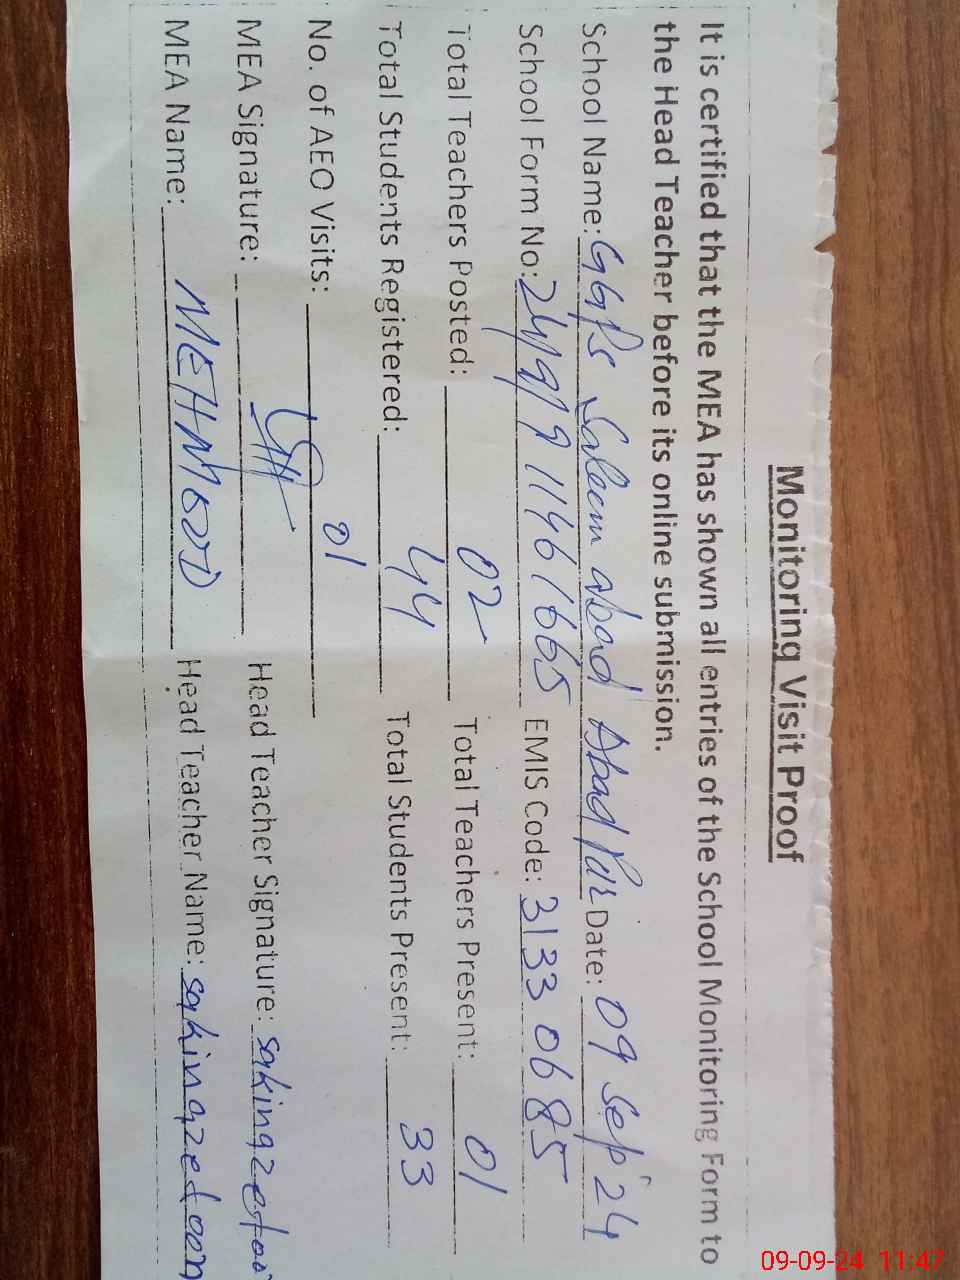 Monitoring Visit Proof
It is certified that the MEA has shown all entries of the School Monitoring Form to
the Head Teacher before its online submission.
School Name: GGPS Saleem abad Abad Pur Date: 09 Sep'24
School Form No: 2499 1146 1665 EMIS Code: 3133 0685
Total Teachers Posted: 02 Total Teachers Present: 01
Total Students Registered: 44 Total Students Present: 33
No. of AEO Visits: 01
MEA Signature: Head Teacher Signature: sakinazetoo
MEA Name: MEHMOOD Head Teacher Name: sakinazetoon
09-09-24 11:47